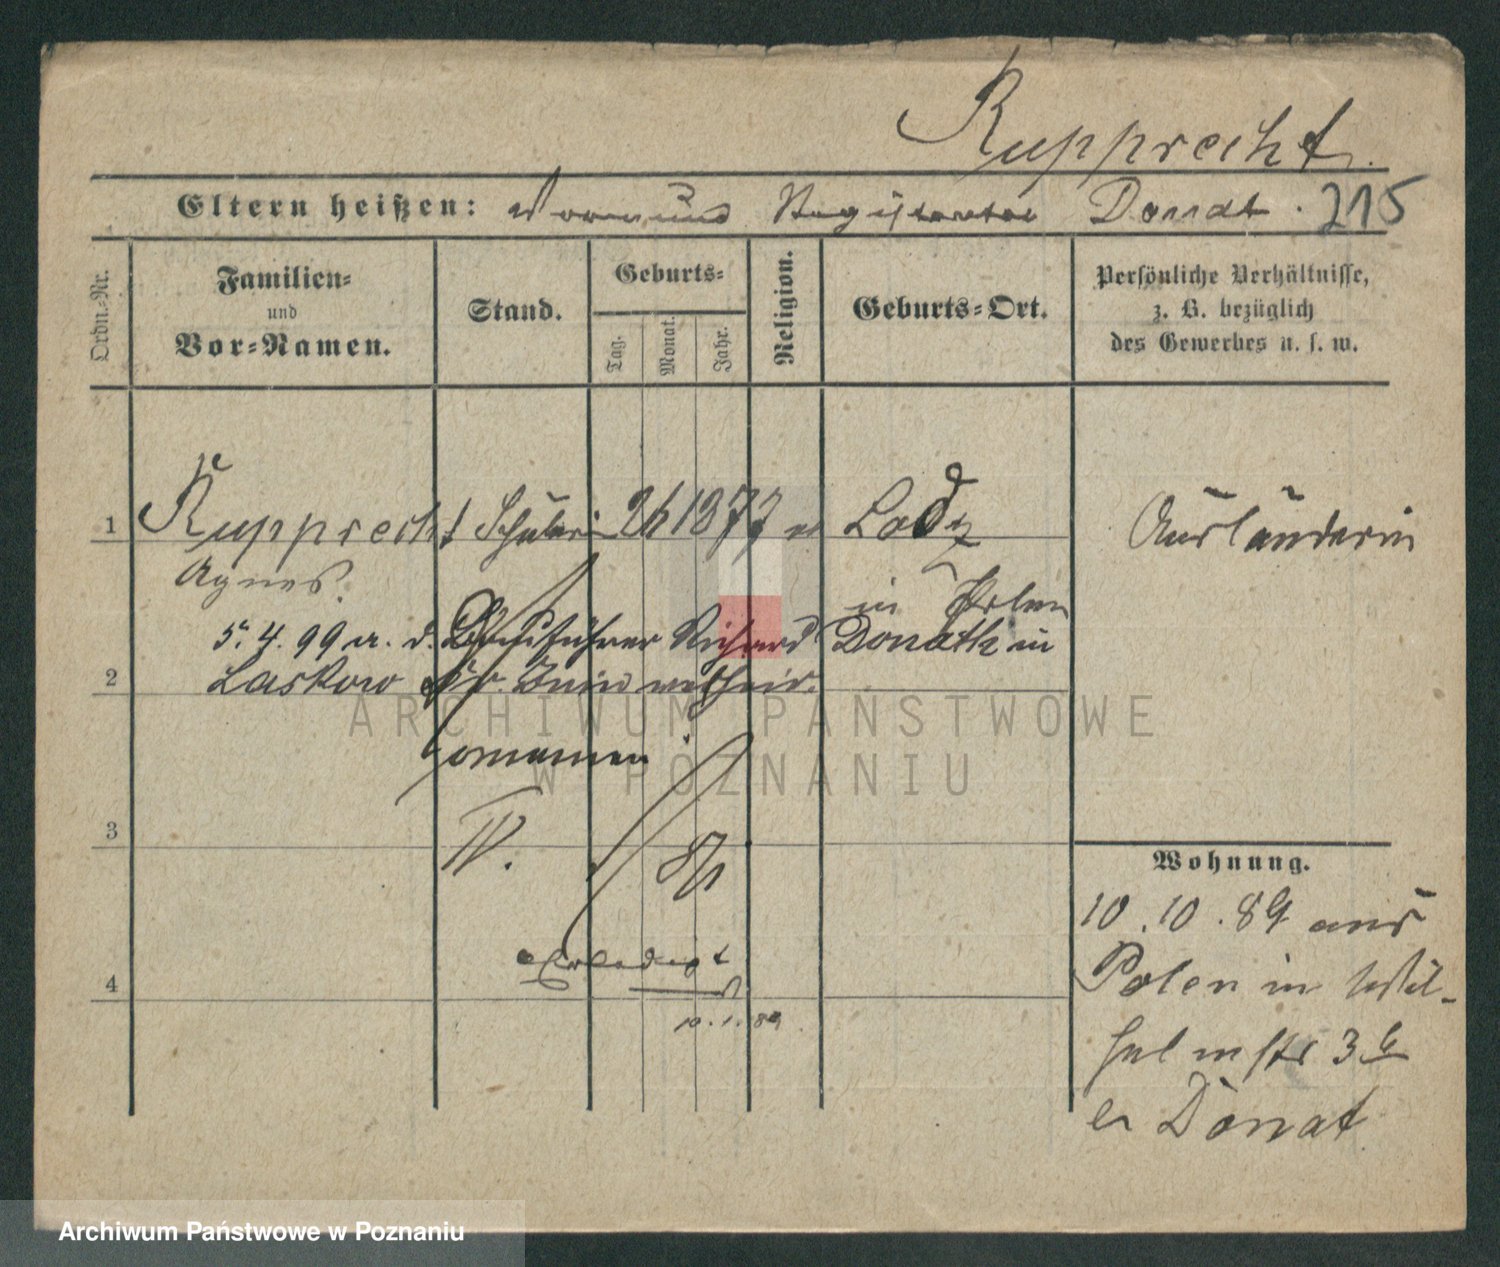 Rupprecht.
Eltern heißen: Vormund Registrator Donat. 215
Ordn.-Nr.
Familien-
und
Vor-Namen.
Stand.
Geburts-
Tag.
Monat.
Jahr.
Religion.
Geburts-Ort.
Persönliche Verhältnisse,
z. B. bezüglich
des Gewerbes u. s. w.
1 Rupprecht Schülerin 1877 Lodz Ausländerin
Agnes. in Polen
5.4.99 a. d. Bauführer Richard Donath in
2 Laskowo verheir.
ARCHIWUM PAŃSTWOWE
W POZNANIU
3
IV.
4 erledigt
10.1.89
Wohnung.
10.10.89 aus
Polen in Wil-
helmstr 3
Donat
Archiwum Państwowe w Poznaniu